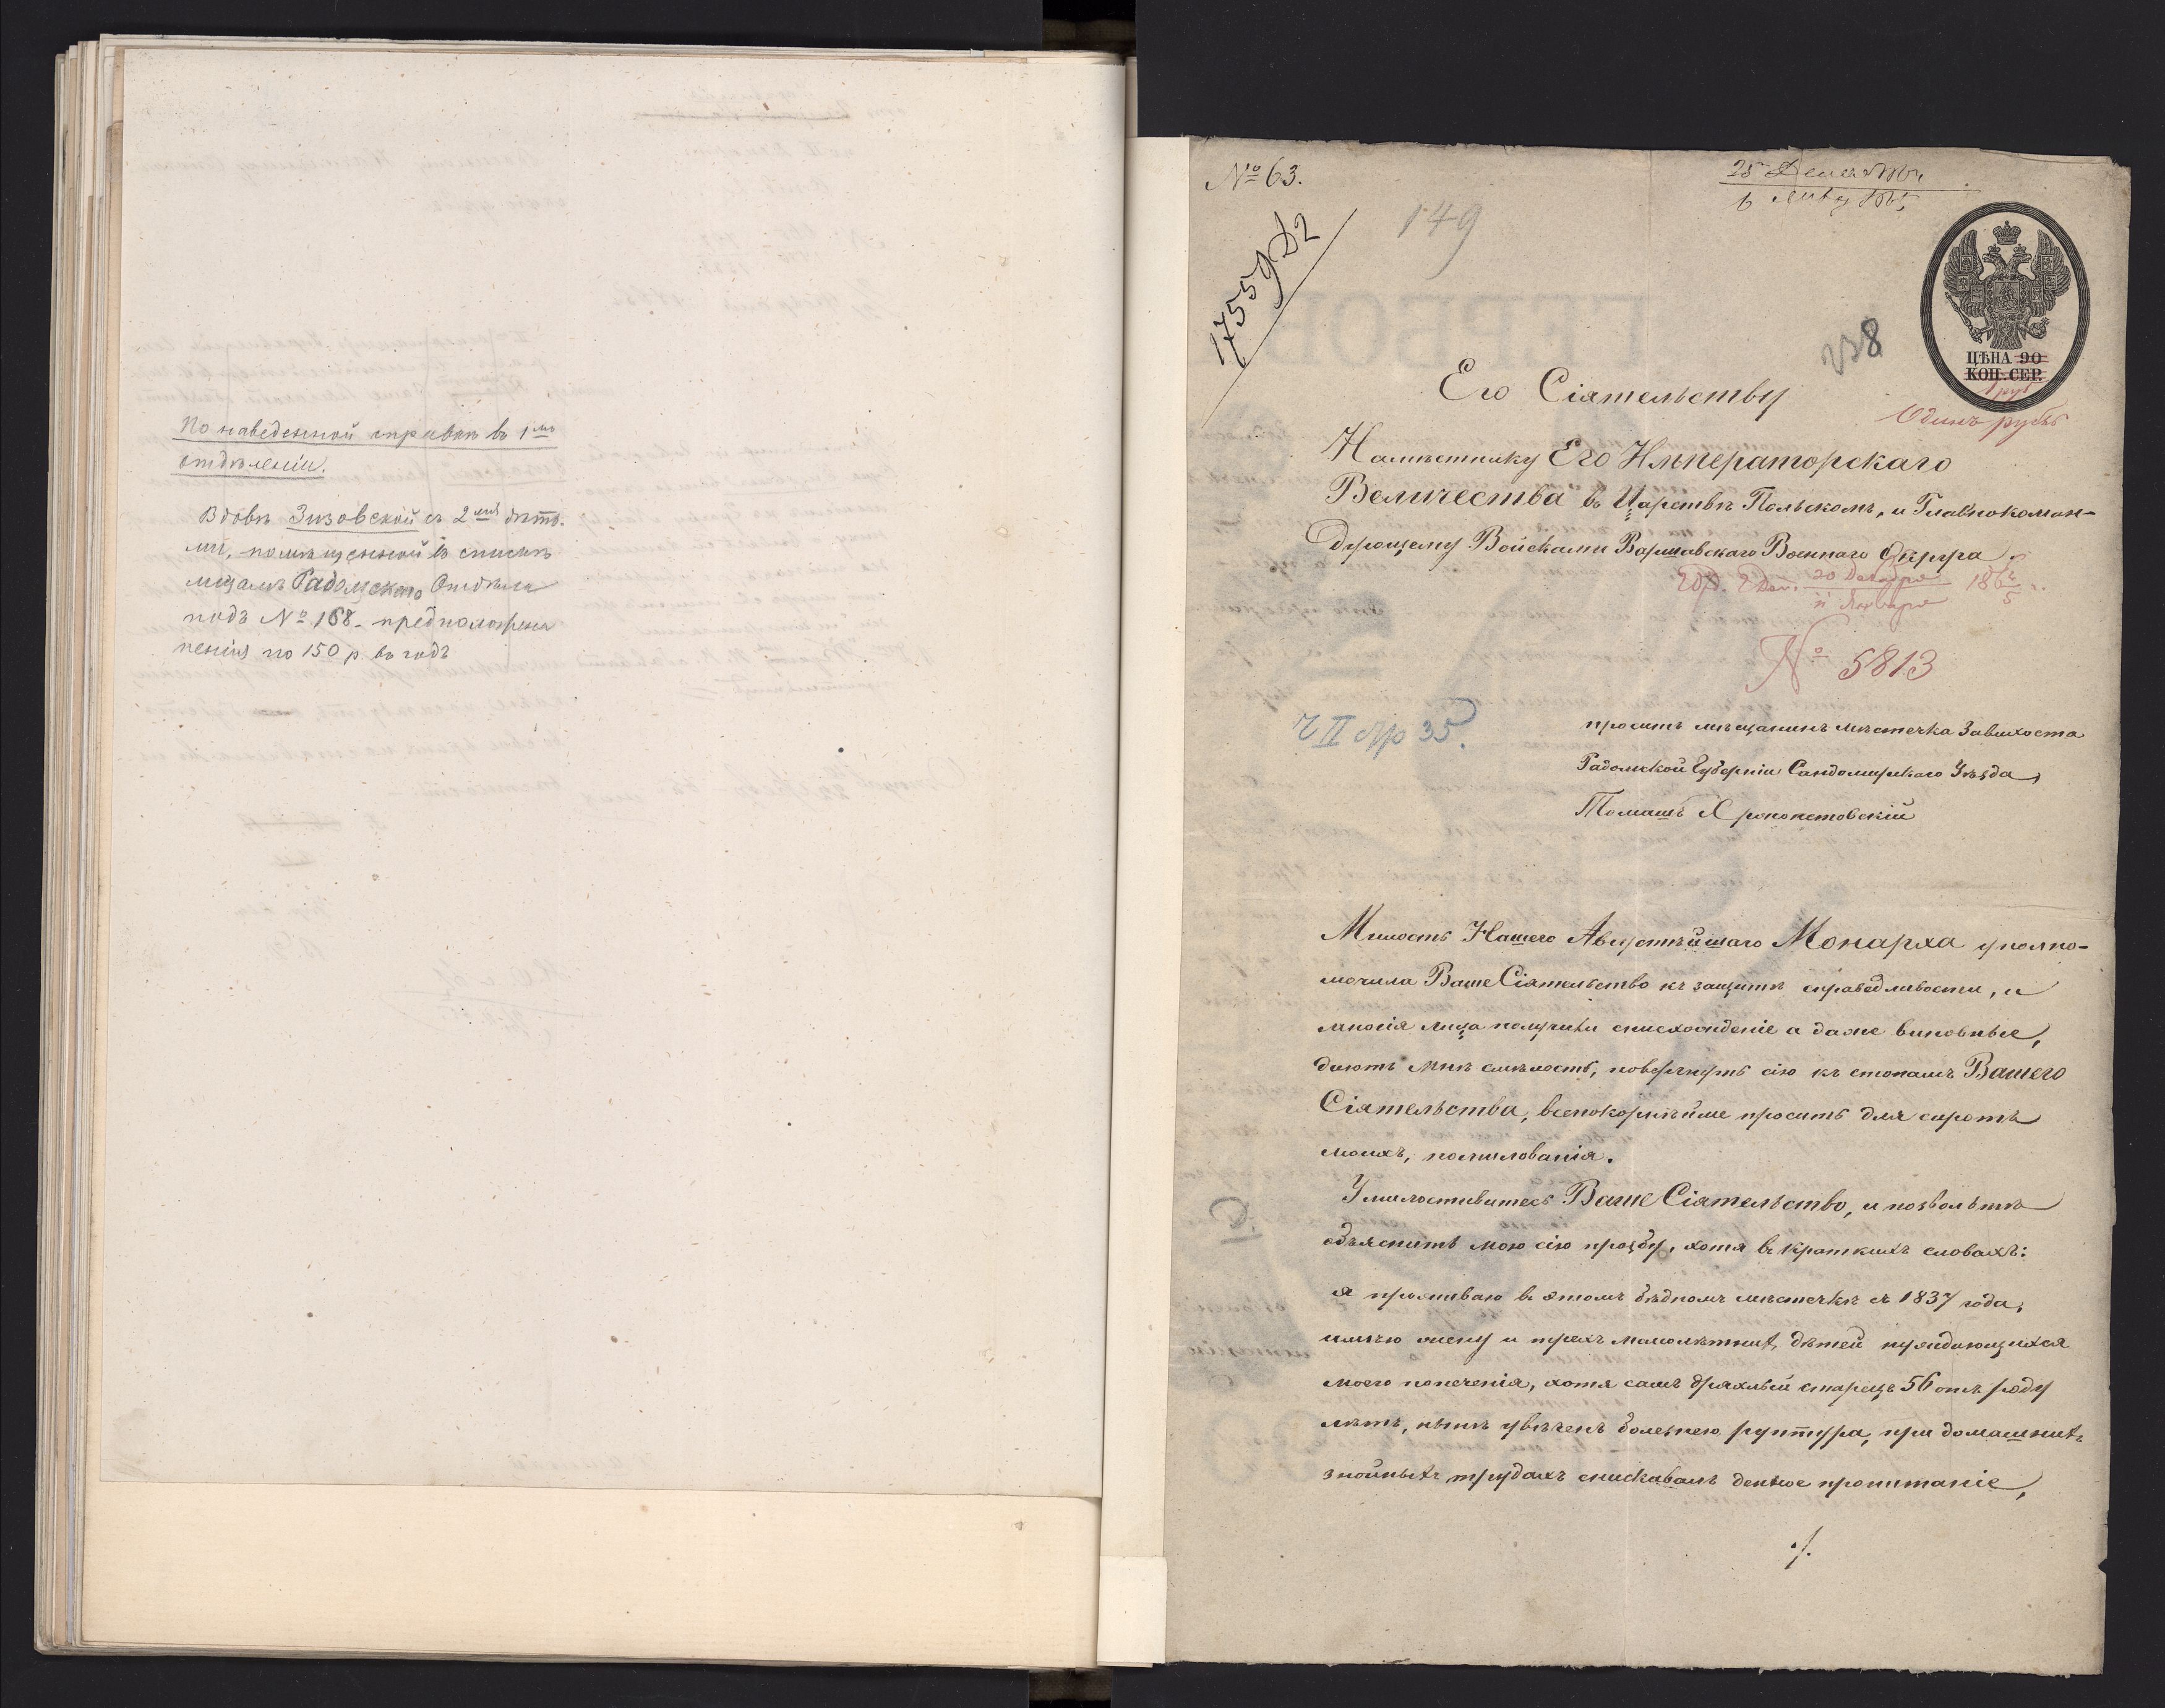 По наведенной справкѣ въ 1мъ
отдѣленіи.
Вдовѣ Зизовской съ 2мя дѣть-
ми, помѣщенной въ спискѣ
лицамъ Радомскаго Отдѣла
подъ № 168 - предположена
пенсія по 150 р. въ годъ
№ 63.
25 Декабр
6 Янв
149
17559 Д2
238
ЦѢНА 90
КОП. СЕР.
1 руб
Одинъ рубль
Его Сіятельству
Намѣстнику Его Императорскаго
Величества въ Царствѣ Польскомъ, и Главнокоман-
дующему Войсками Варшавскаго Военнаго Округа
20 Декабря
Января
186 4/5
№ 5813
ч II стр 35.
проситъ мѣщанинъ мѣстечка Завихоста
Радомской Губерніи Сандомирскаго Уѣзда,
Томашъ
Милость Нашего Августѣйшаго Монарха уполно-
мочила Ваше Сіятельство къ защитѣ справедливости, и
многія лица получили снисхожденіе а даже виновные,
даютъ мнѣ смѣлость, повергнуть сію къ стопамъ Вашего
Сіятельства, всепокорнѣйше просить для сиротъ
моихъ, помилованія.
Умилостивитесь Ваше Сіятельство, и позвольте
объяснить мою сію прозбу, хотя въ краткихъ словахъ:
я проживаю въ этомъ бѣдномъ мѣстечкѣ съ 1837 года,
имѣю жену и трехъ малолѣтнихъ дѣтей нуждающихся
моего попеченія, хотя самъ дряхлый старецъ 56 отъ роду
лѣтъ, нынѣ увѣченъ болезнею руптура, при домашнихъ
знойныхъ трудахъ снискивалъ денное пропитаніе,
./.